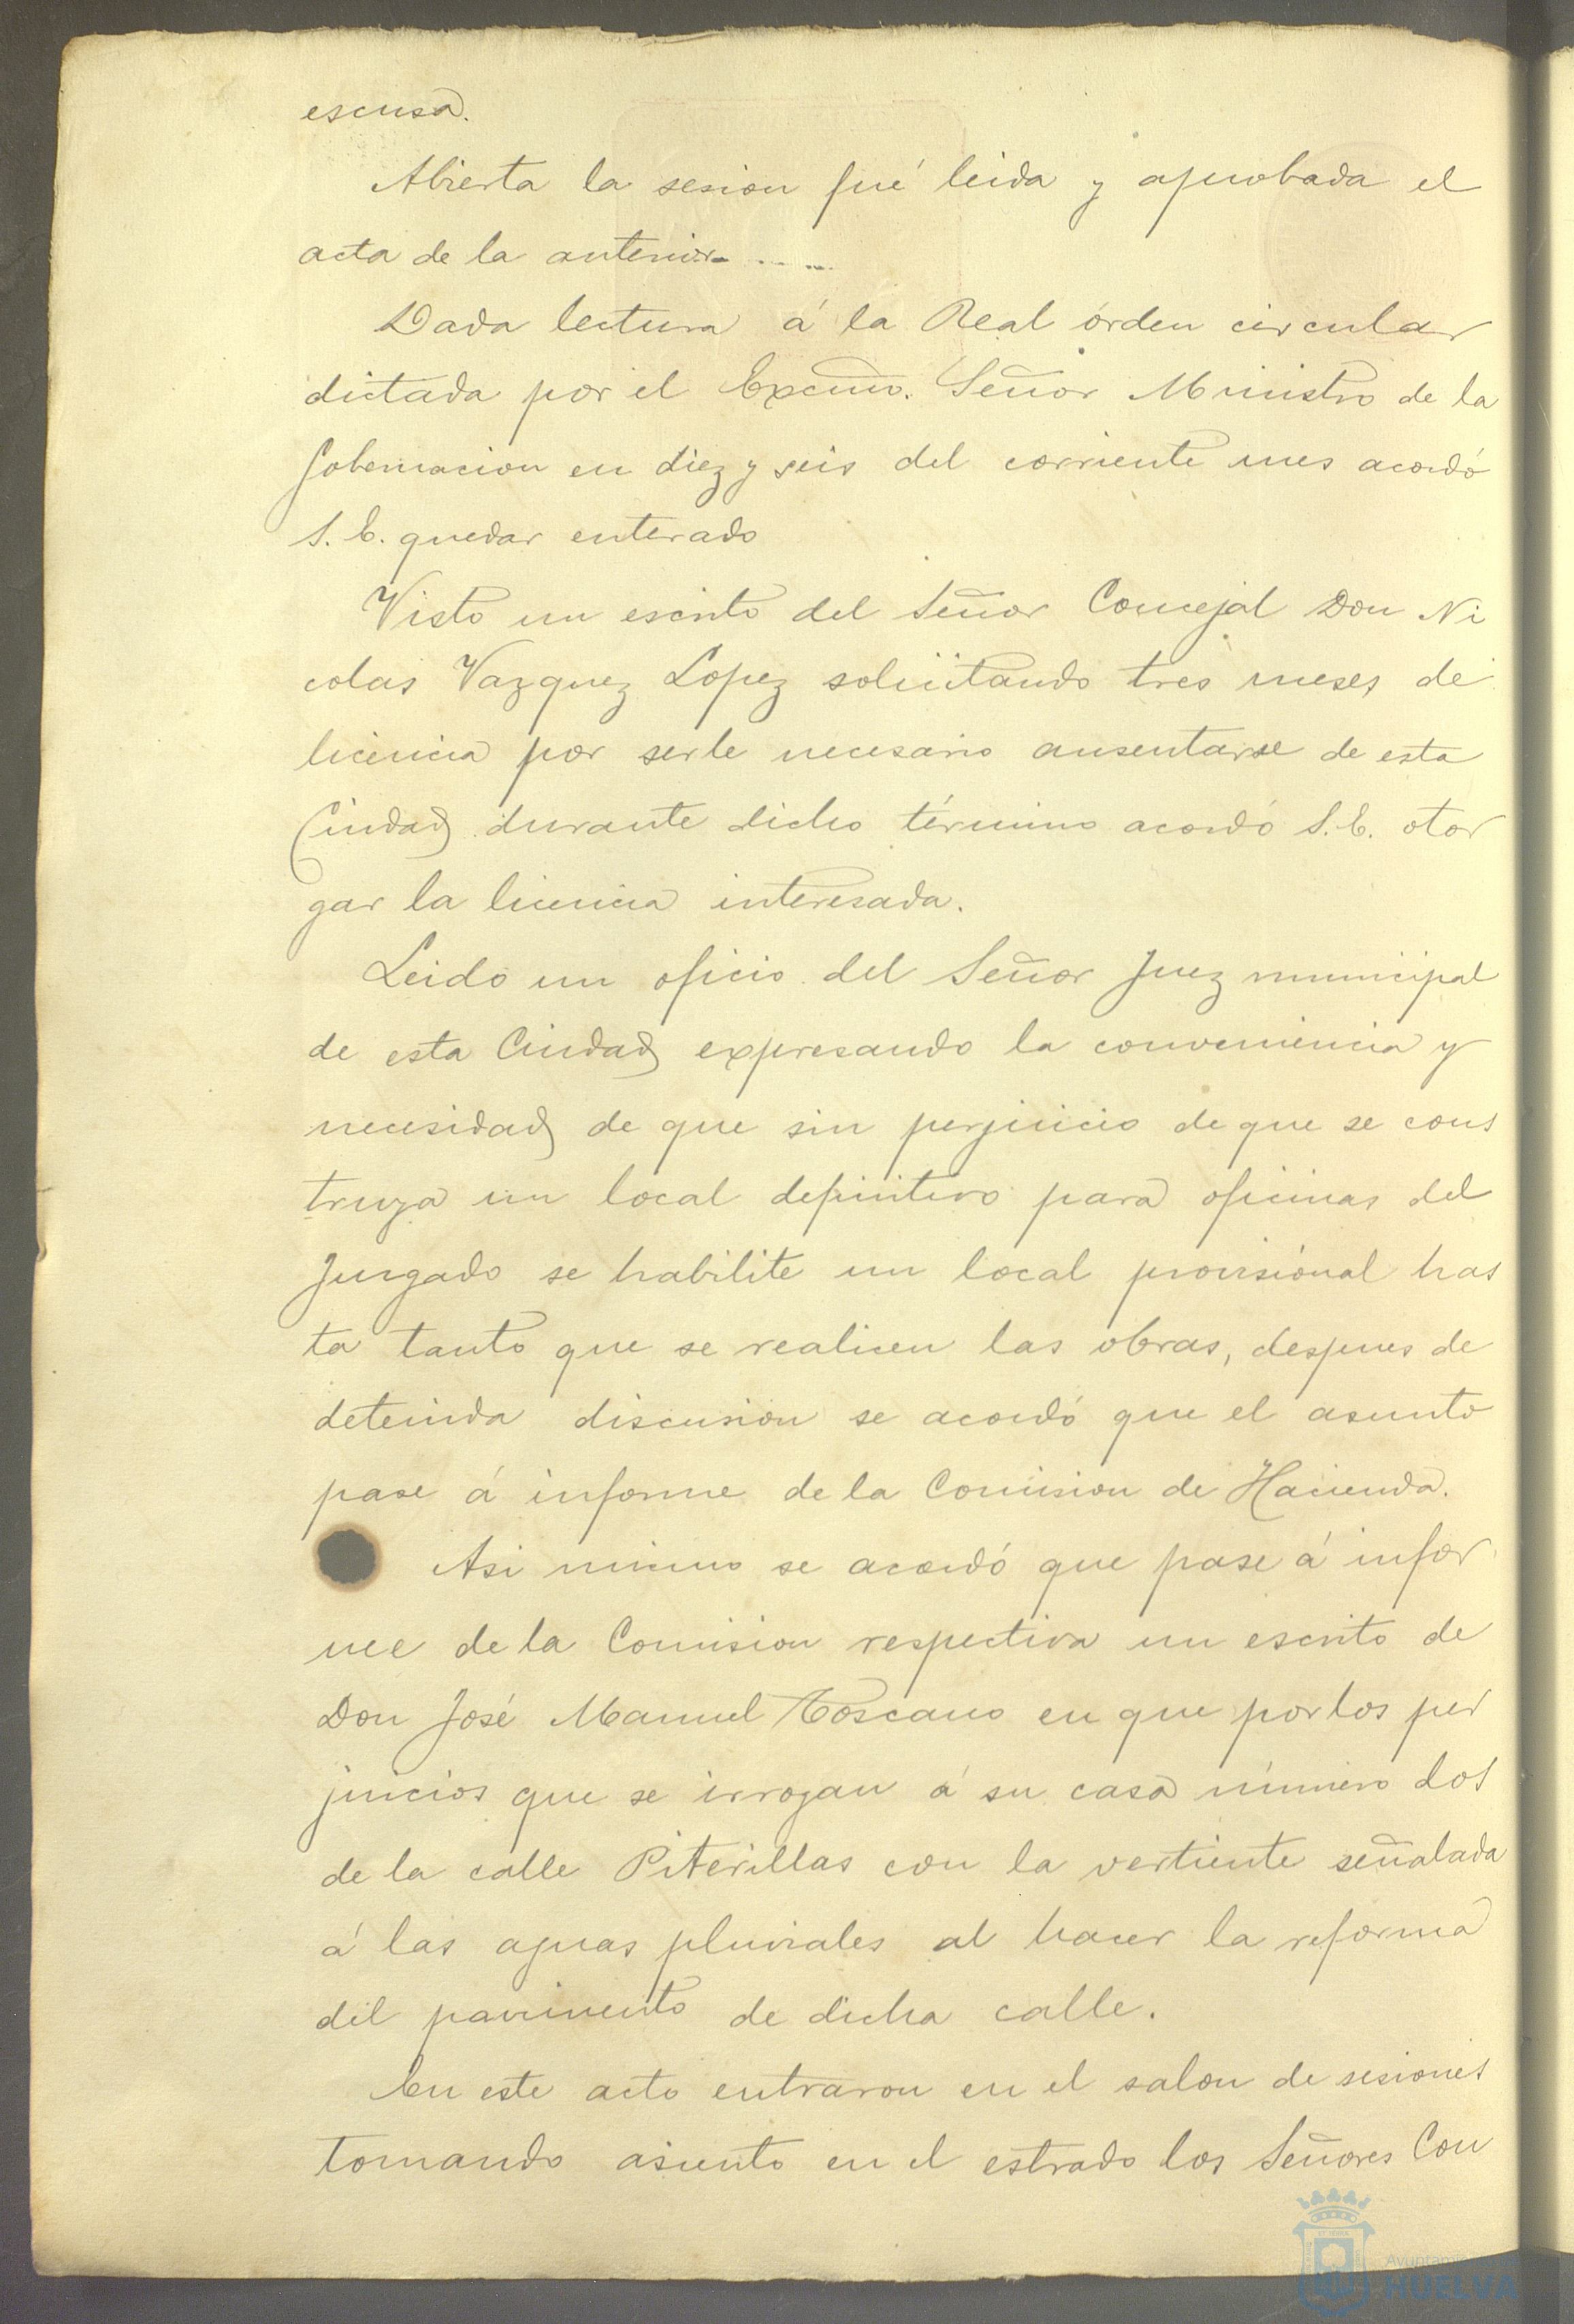 escusa.
Abierta la sesion fué leida y aprobada el
acta de la anterior- .. ...
Dada lectura á la Real órden circular
dictada por el Excmo. Señor Ministro de la
Gobernacion en diez y seis del corriente mes acordó
S. E. quedar enterado
Visto un escrito del Señor Concejal Don Ni
colas Vazquez Lopez solicitando tres meses de
licencia por serle necesario ausentarse de esta
Ciudad durante dicho término acordó S. E. otor
gar la licencia interesada.
Leido un oficio del Señor Juez municipal
de esta Ciudad expresando la conveniencia y
necesidad de que sin perjuicio de que se cons
truya un local definitivo para oficinas del
Juzgado se habilite un local provisional has
ta tanto que se realicen las obras, despues de
detenida discusion se acordó que el asunto
pase á informe de la Comision de Hacienda.
Asi mismo se acordó que pase á infor
me de la Comision respectiva un escrito de
Don José Manuel Toscano en que por los per
juicios que se irrogan á su casa número dos
de la calle Piterillas con la vertiente señalada
á las aguas pluviales al hacer la reforma
del pavimento de dicha calle.
En este acto entraron en el salon de sesiones
tomando asiento en el estrado los Señores Con
HUELVA